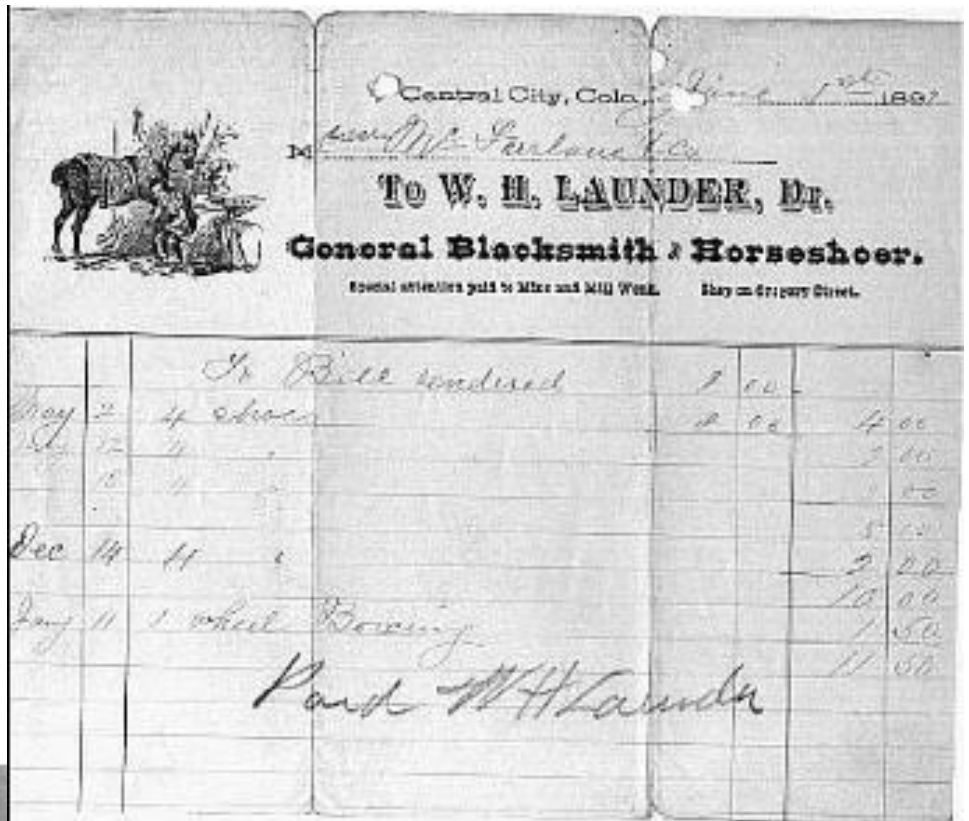 Central City, Colo, June 1st 1897
M McFarlane & Co
To W. H. LAUNDER, Dr.
General Blacksmith & Horseshoer.
Special attention paid to Mine and Mill Work. Shop on Gregory Street.
To Bill rendered 00
2 4 shoes 00 4 00
12 4 " 2 00
4 " 00
8 00
Dec 14 4 " 2 00
10 00
11 1 wheel 1 50
11 50
Paid W H Launder